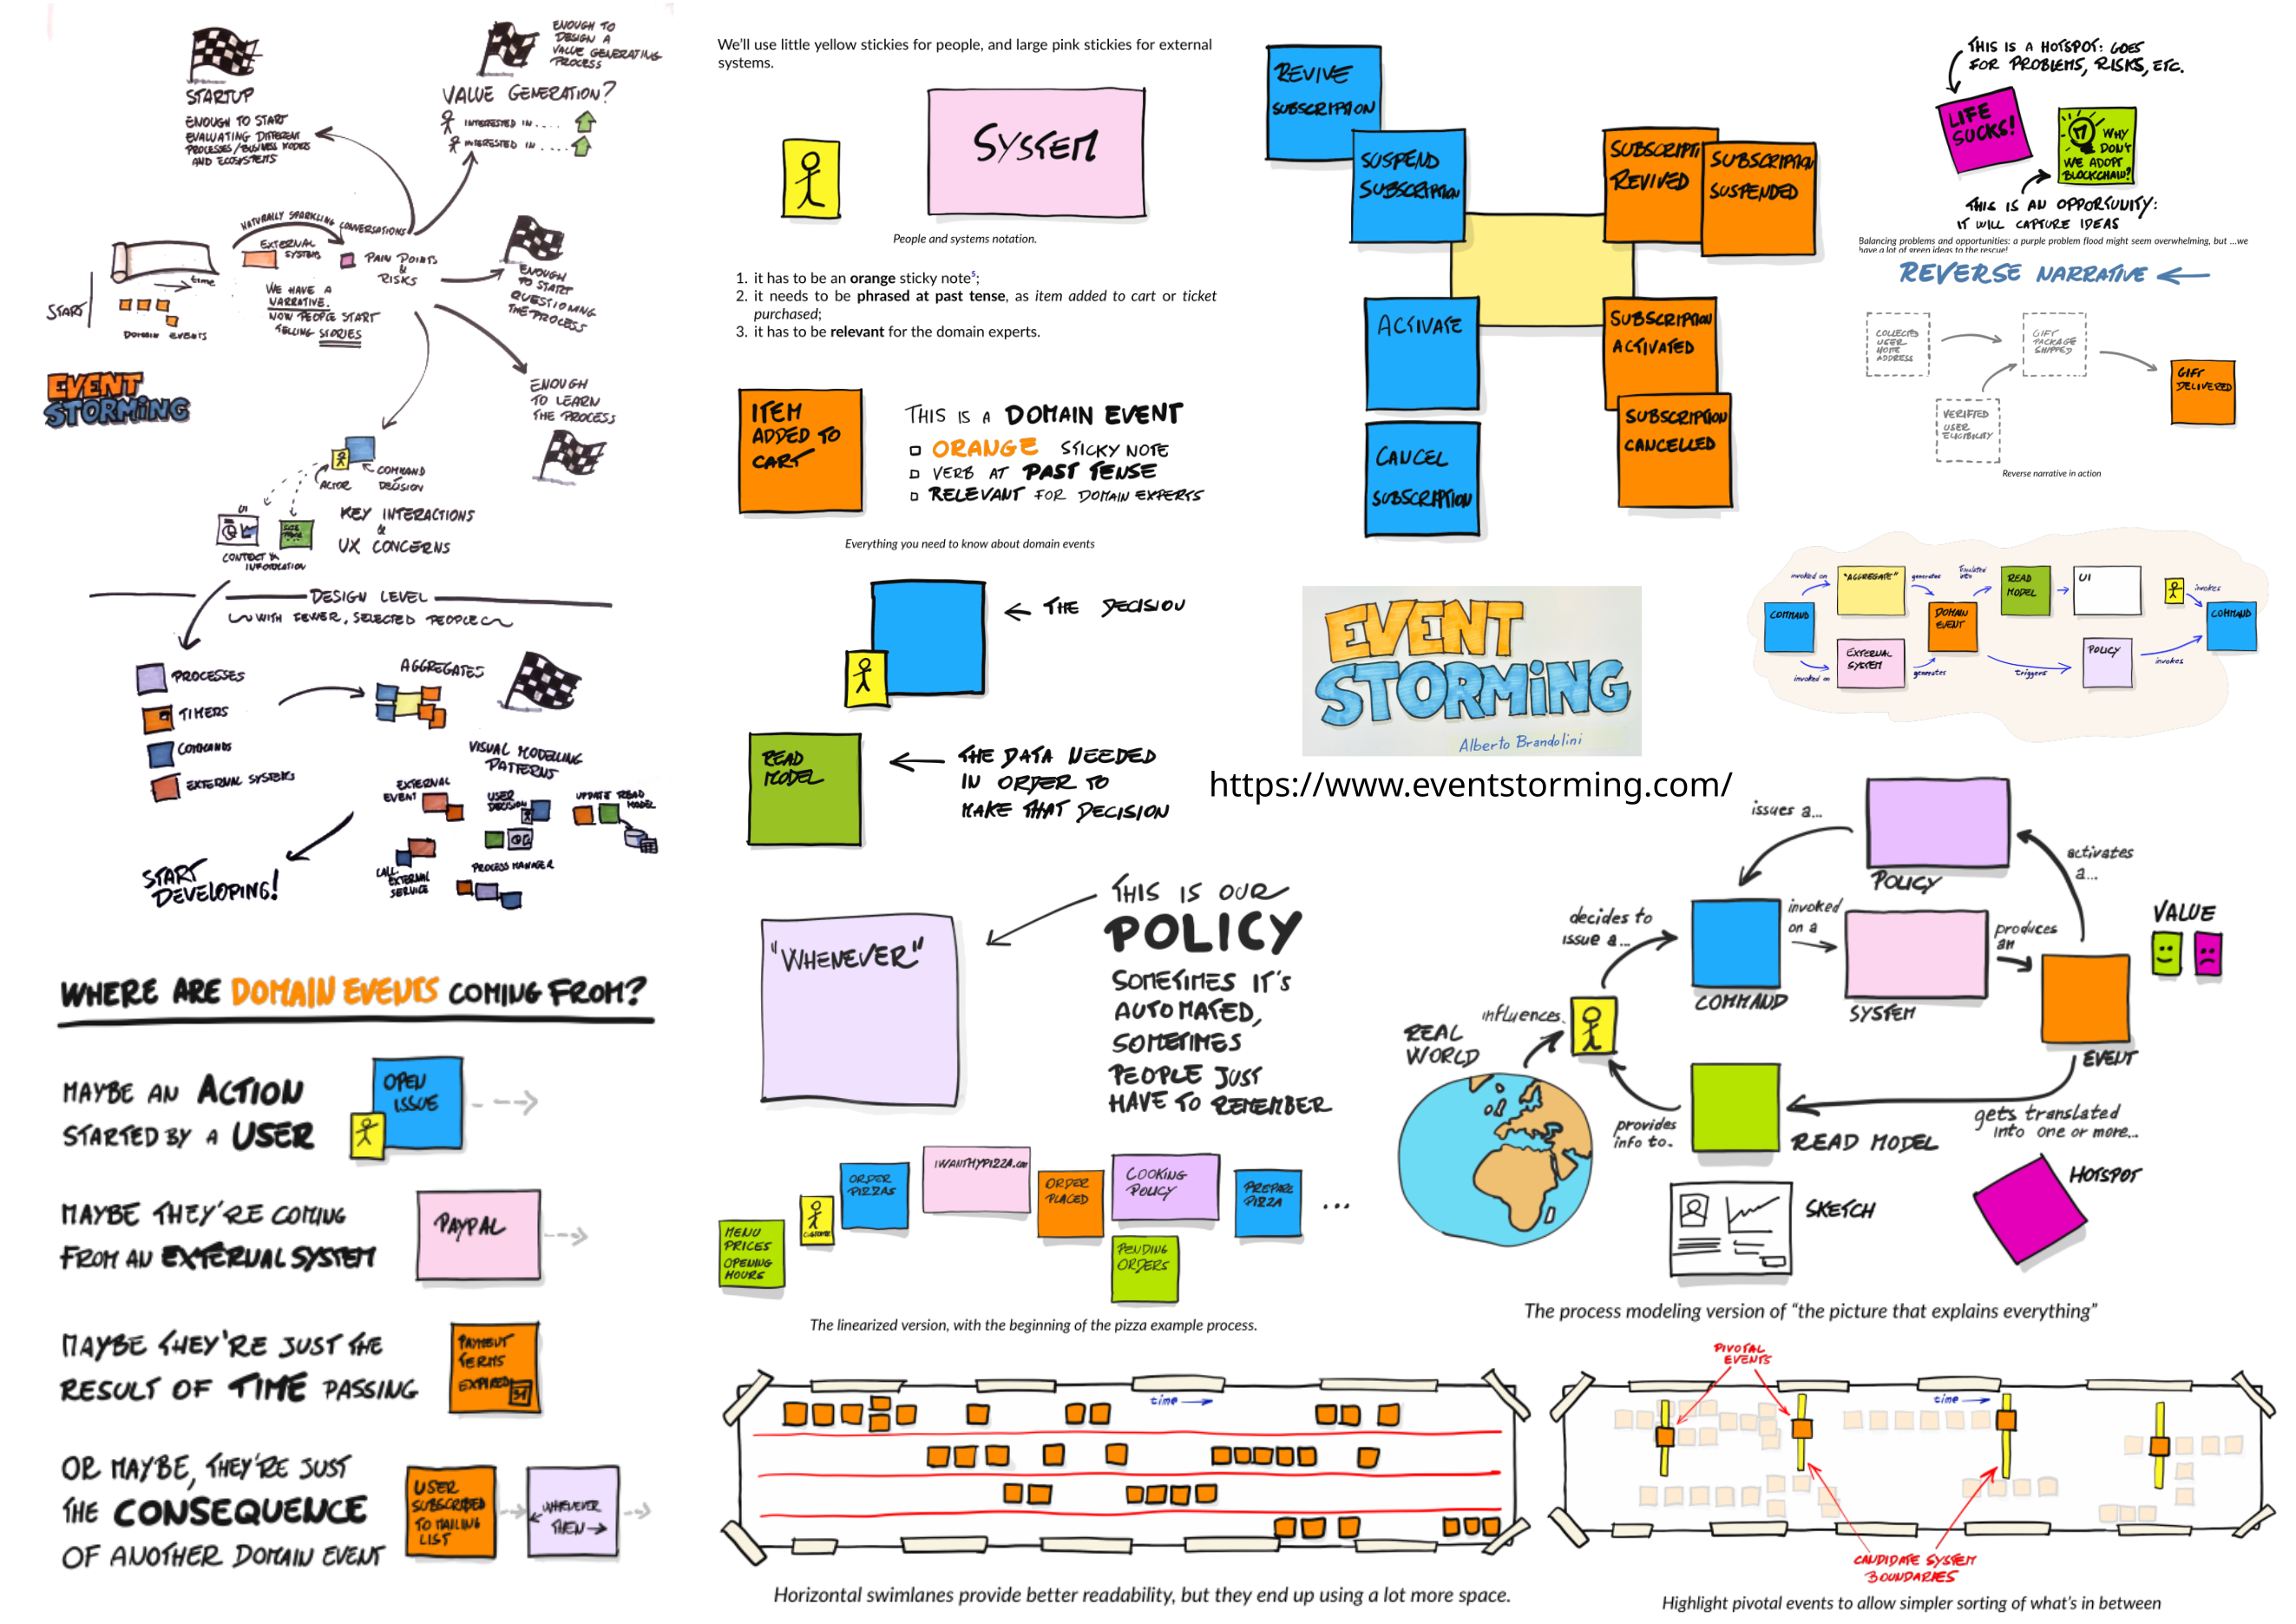 STARTUP
ENOUGH TO START
EVALUATING DIFFERENT
PROCESSES/BUSINESS MODELS
AND ECOSYSTEMS
ENOUGH TO
DESIGN A
VALUE GENERATING
PROCESS
VALUE GENERATION?
INTERESTED IN ....
INTERESTED IN ....
NATURALLY SPARKLING CONVERSATIONS
EXTERNAL
SYSTEMS
PAIN POINTS
&
RISKS
time
START
DOMAIN EVENTS
WE HAVE A
NARRATIVE.
NOW PEOPLE START
TELLING STORIES
ENOUGH
TO START
QUESTIONING
THE PROCESS
ENOUGH
TO LEARN
THE PROCESS
EVENT
STORMING
COMMAND
DECISION
ACTOR
UI
CONTEXT &
INFORMATION
KEY INTERACTIONS
&
UX CONCERNS
DESIGN LEVEL
WITH FEWER, SELECTED PEOPLE
PROCESSES
TIMERS
COMMANDS
EXTERNAL SYSTEMS
AGGREGATES
VISUAL MODELLING
PATTERNS
EXTERNAL
EVENT
USER
DECISION
UPDATE READ
MODEL
CALL
EXTERNAL
SERVICE
PROCESS MANAGER
START
DEVELOPING!
WHERE ARE DOMAIN EVENTS COMING FROM?
MAYBE AN ACTION
STARTED BY A USER
OPEN
ISSUE
MAYBE THEY'RE COMING
FROM AN EXTERNAL SYSTEM
PAYPAL
MAYBE THEY'RE JUST THE
RESULT OF TIME PASSING
PAYMENT
TERMS
EXPIRED
31
OR MAYBE, THEY'RE JUST
THE CONSEQUENCE
OF ANOTHER DOMAIN EVENT
USER
SUBSCRIBED
TO MAILING
LIST
WHENEVER
THEN
We'll use little yellow stickies for people, and large pink stickies for external
systems.
SYSTEM
People and systems notation.
1. it has to be an orange sticky note5;
2. it needs to be phrased at past tense, as item added to cart or ticket
purchased;
3. it has to be relevant for the domain experts.
ITEM
ADDED TO
CART
THIS IS A DOMAIN EVENT
ORANGE STICKY NOTE
VERB AT PAST TENSE
RELEVANT FOR DOMAIN EXPERTS
Everything you need to know about domain events
THE DECISION
READ
MODEL
THE DATA NEEDED
IN ORDER TO
MAKE THAT DECISION
"WHENEVER"
THIS IS OUR
POLICY
SOMETIMES IT'S
AUTOMATED,
SOMETIMES
PEOPLE JUST
HAVE TO REMEMBER
MENU
PRICES
OPENING
HOURS
CUSTOMER
ORDER
PIZZAS
IWANTMYPIZZA.COM
ORDER
PLACED
COOKING
POLICY
PENDING
ORDERS
PREPARE
PIZZA
...
The linearized version, with the beginning of the pizza example process.
time
Horizontal swimlanes provide better readability, but they end up using a lot more space.
REVIVE
SUBSCRIPTION
SUSPEND
SUBSCRIPTION
SUBSCRIPTI
REVIVED
SUBSCRIPTION
SUSPENDED
ACTIVATE
SUBSCRIPTION
ACTIVATED
CANCEL
SUBSCRIPTION
SUBSCRIPTION
CANCELLED
EVENT
STORMING
Alberto Brandolini
https://www.eventstorming.com/
THIS IS A HOTSPOT: GOES
FOR PROBLEMS, RISKS, ETC.
LIFE
SUCKS!
WHY
DON'T
WE ADOPT
BLOCKCHAIN?
THIS IS AN OPPORTUNITY:
IT WILL CAPTURE IDEAS
Balancing problems and opportunities: a purple problem flood might seem overwhelming, but ...we
have a lot of green ideas to the rescue!
REVERSE NARRATIVE
COLLECTED
USER
HOME
ADDRESS
GIFT
PACKAGE
SHIPPED
GIFT
DELIVERED
VERIFIED
USER
ELIGIBILITY
Reverse narrative in action
invoked on
"AGGREGATE"
generates
Translated
into
READ
MODEL
UI
invokes
COMMAND
DOMAIN
EVENT
COMMAND
invoked on
EXTERNAL
SYSTEM
generates
triggers
POLICY
invokes
issues a...
POLICY
activates
a...
decides to
issue a...
COMMAND
invoked
on a
SYSTEM
produces
an
EVENT
VALUE
influences
REAL
WORLD
provides
info to.
READ MODEL
gets translated
into one or more...
SKETCH
HOTSPOT
The process modeling version of "the picture that explains everything"
PIVOTAL
EVENTS
time
CANDIDATE SYSTEM
BOUNDARIES
Highlight pivotal events to allow simpler sorting of what's in between